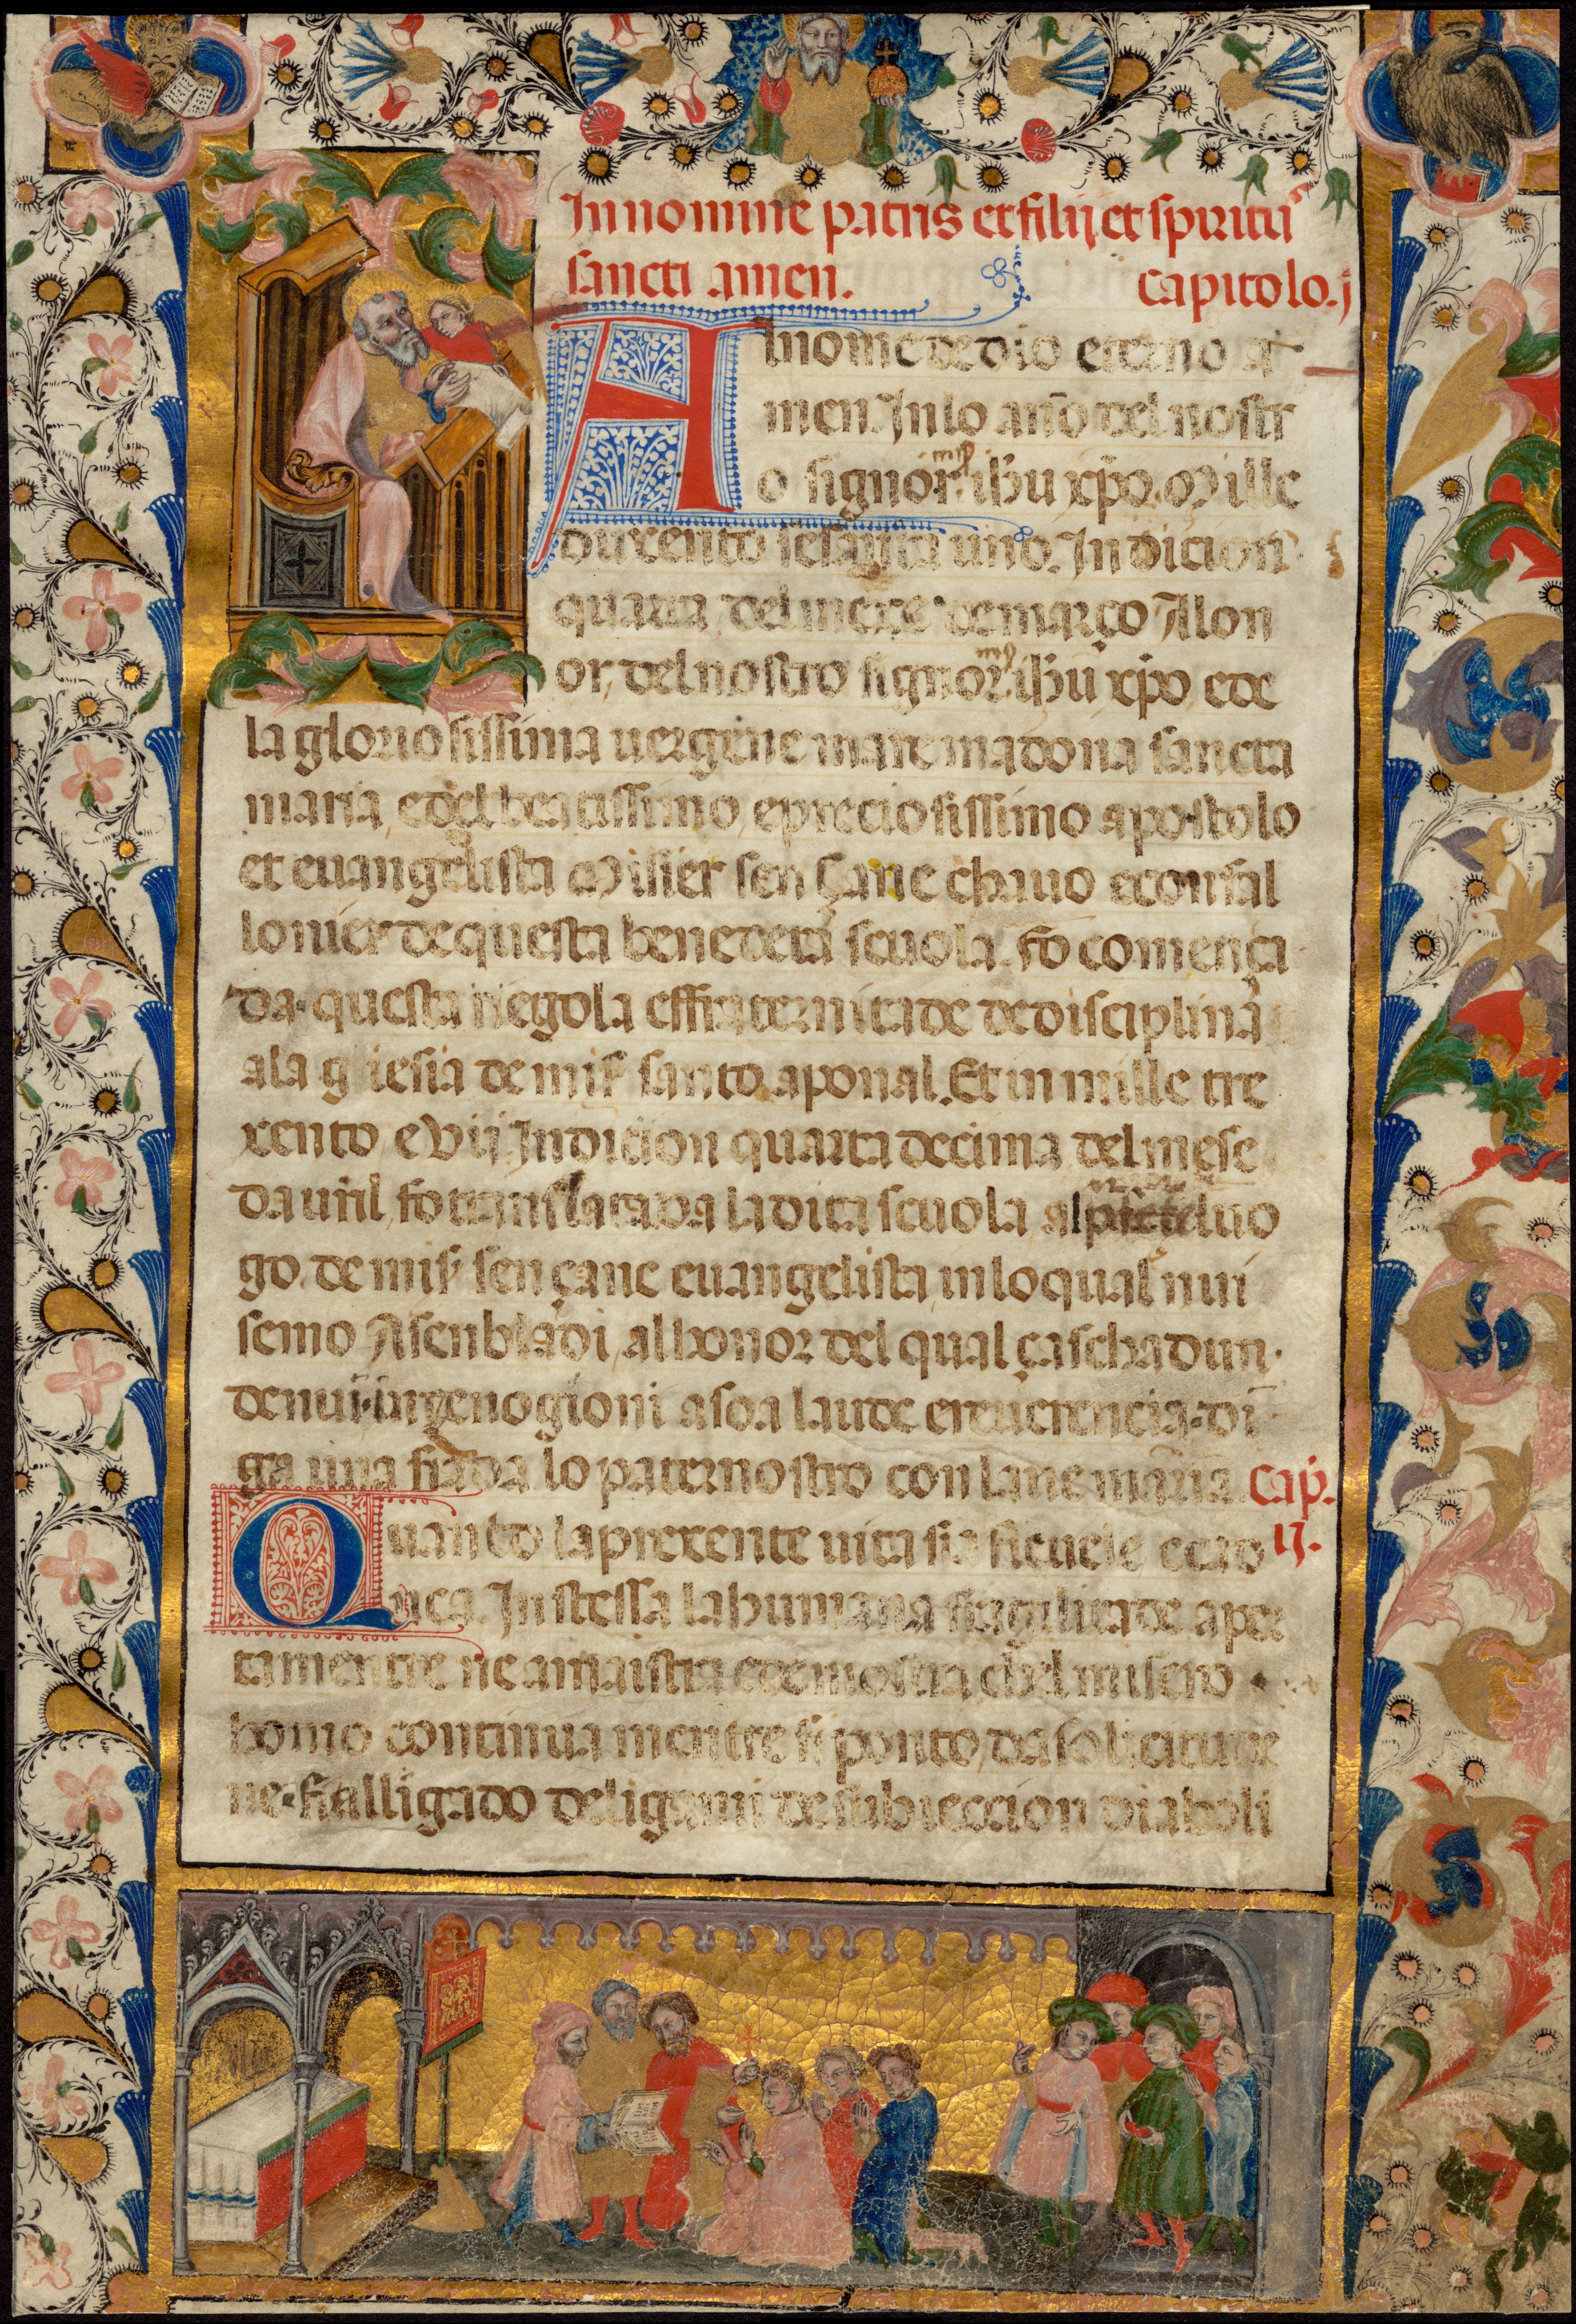 In nomine patris et filij et spiritu̅s
sancti amen. Capitolo. j
Al nome de dio eterno a
men. In lo an̅o del nostr
o signor mis̅ ih̅u xp̅o. Mille
duxento sesanta uno. Indicion
quarta del mexe de março Alon
or, del nostro signor mis̅ ih̅u xp̅o, ede
la gloriosissima uergene mare madona sancta
maria, edel beatissimo, epreciosissimo apostolo
et euangelista Misier sen çane chauo econfal
lonier de questa benedeta scuola. fo comença
da questa Regola effraternitade de disciplina
ala gliesia de mis̅ santo aponal. Et in mille tre
xento e Vij Indicion quarta decima del mese
dauril, fo translatada la dita scuola al luo
go. de mis̅ sen çane euangelista, in lo qual nui
semo Asenbladi, al honor del qual çaschadun.
de nui. inzenogioni a soa laude ereuerencia. di
ga una fiada lo paternostro con laue maria. Cap̅.
ij.
Quando la prexente uita sia fieuele ecad
uca. In stessa la humana fragilitade aper
tamentre ne amaistra edemostra chel misero
homo continua mentre si ponto, da solicitudi
ne. si alligado de ligami de subieccion diaboli